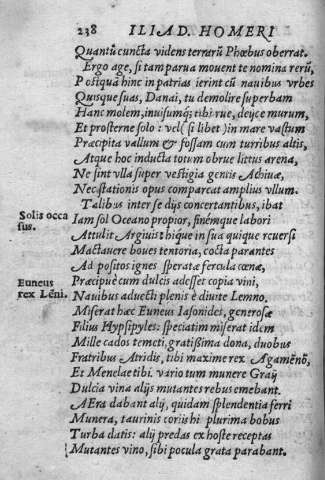 238 ILIAD. HOMERI
Quantũ cuncta videns terrarũ Phœbus oberrat.
Ergo age, si tam parua mouent te nomina rerũ,
Postquã hinc in patrias ierint cũ nauibus vrbes
Quisque suas, Danai, tu demolire superbam
Hanc molem, inuisumq; tibi rue, deijce murum,
Et prosterne solo: vel (si libet) in mare vastum
Præcipita vallum & fossam cum turribus altis,
Atque hoc inducta totum obrue littus arena,
Ne sint vlla super vestigia gentis Achiuæ,
Nec stationis opus compareat amplius vllum.
Talibus inter se dijs concertantibus, ibat
Solis occa
sus.
Iam sol Oceano propior, finémque labori
Attulit Argiui: st hique in sua quique reuersi
Mactauere boues tentoria, cocta parantes
Ad positos ignes speratæ fercula cœnæ,
Euneus
rex Lẽni.
Præcipuè cum dulcis adesset copia vini,
Nauibus aduecti plenis è diuite Lemno.
Miserat hæc Euneus Iasonides, generosæ
Filius Hypsipyles: speciatim miserat idem
Mille cados temeti, gratißima dona, duobus
Fratribus Atridis, tibi maxime rex Agamẽnõ,
Et Menelae tibi. vario tum munere Graij
Dulcia vina alijs mutantes rebus emebant.
AEra dabant alij, quidam splendentia ferri
Munera, taurinis corijs hi plurima bobus
Turba datis: alij predas ex hoste receptas
Mutantes vino, sibi pocula grata parabant.